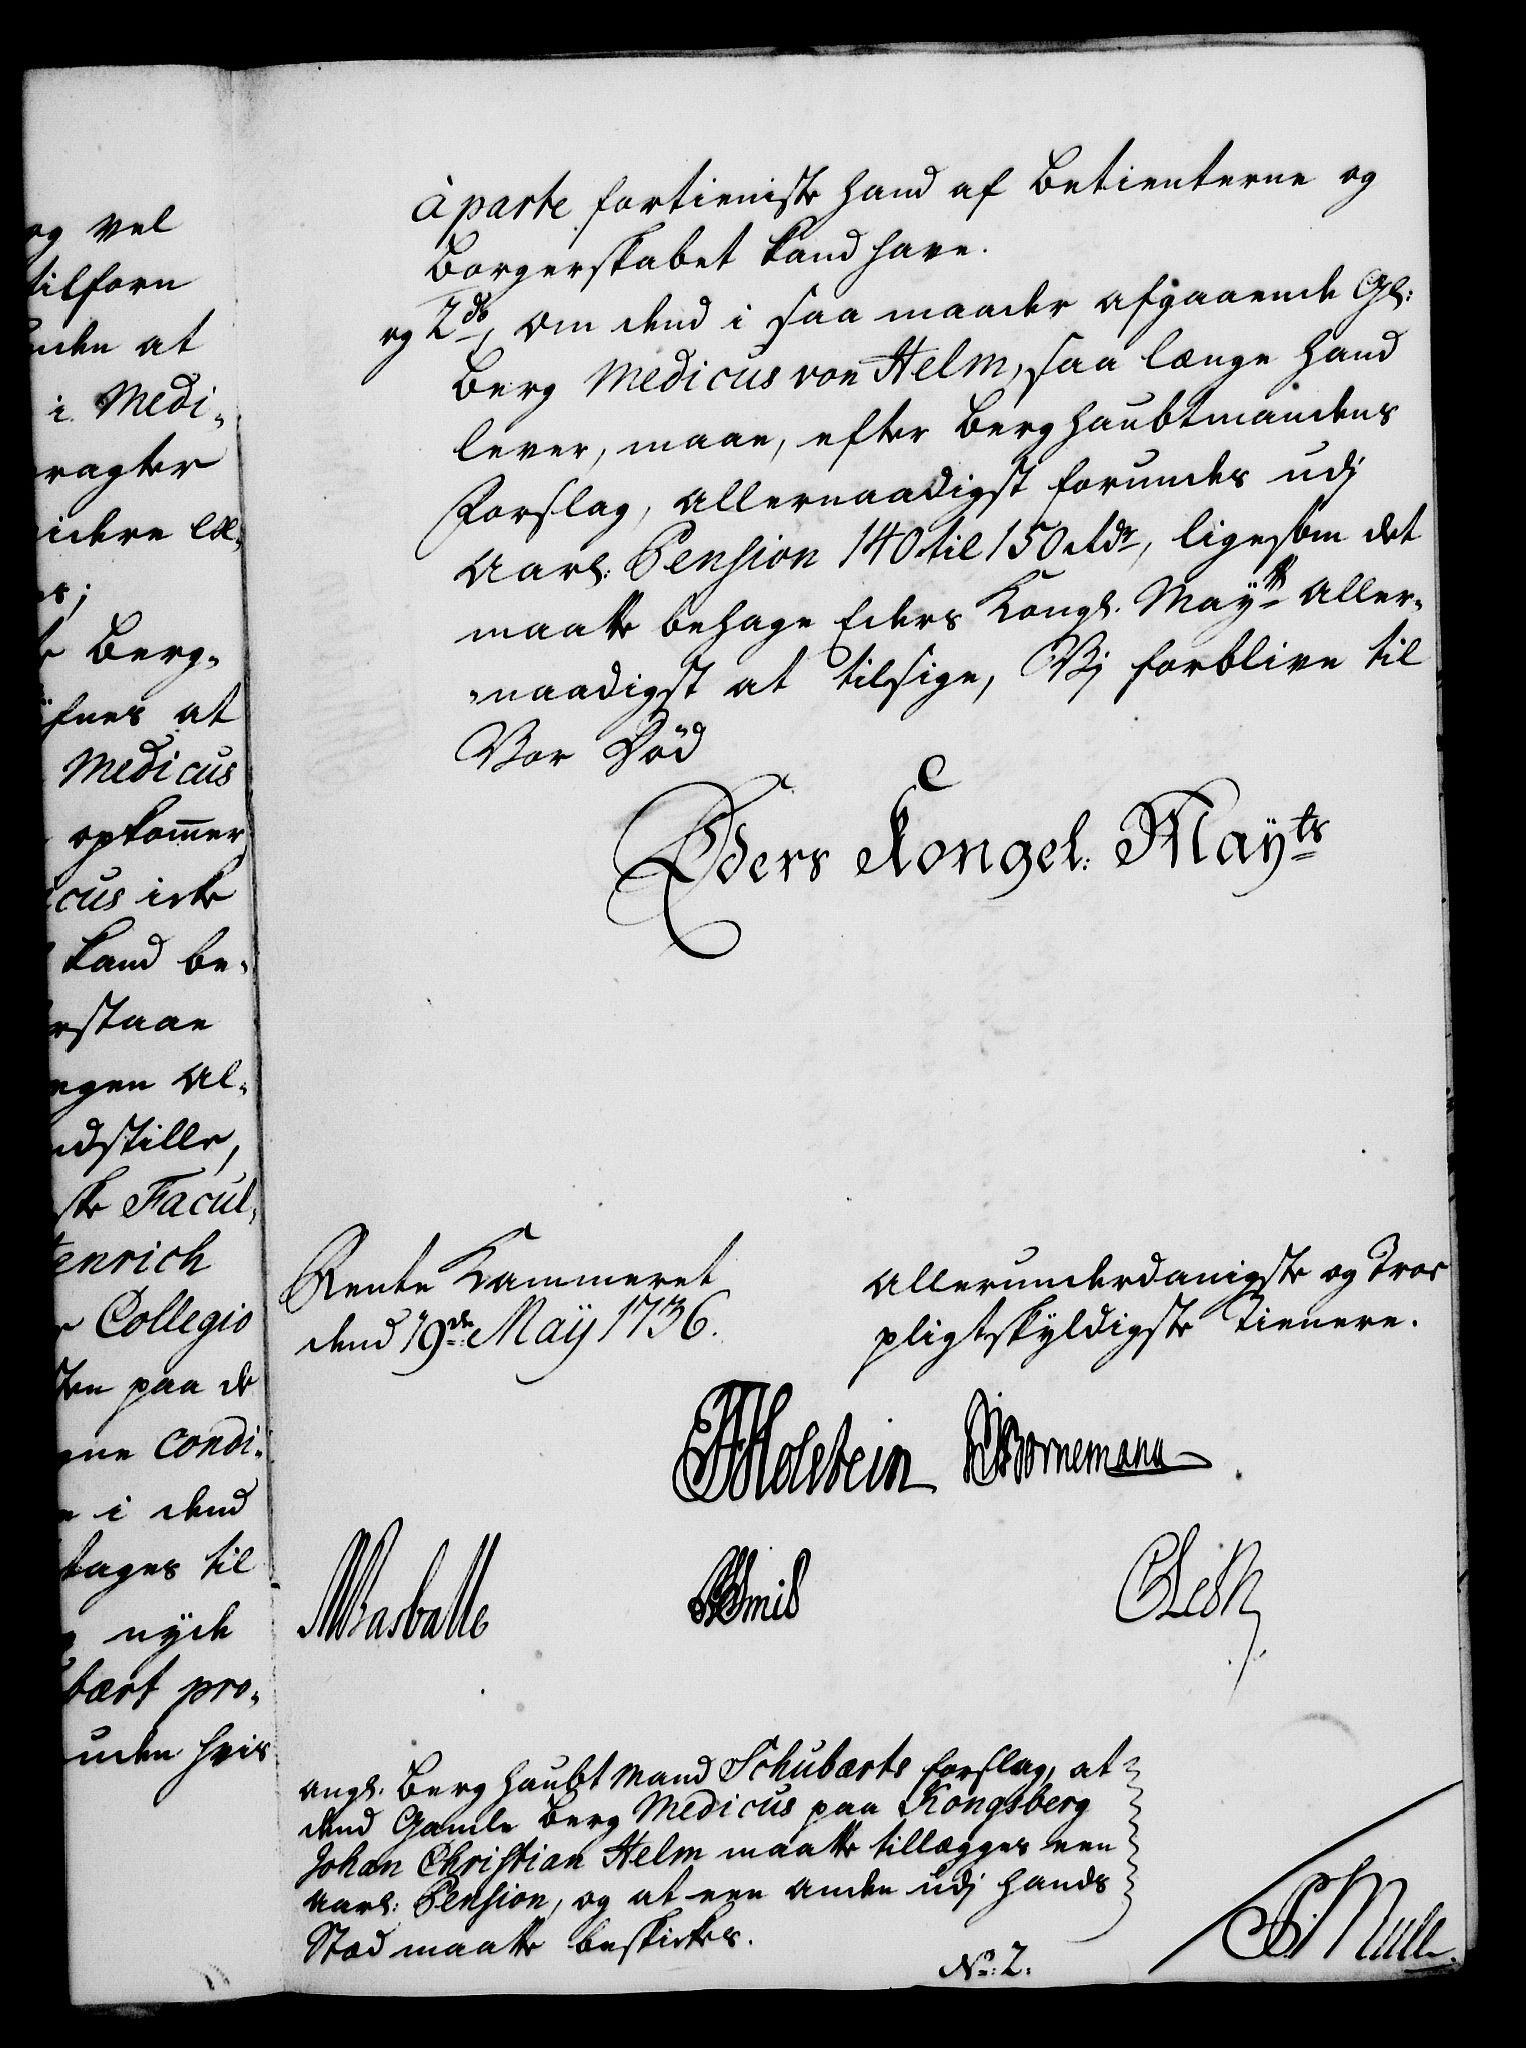 og vel
tilforn
nden at
i Medi-
ragter
videre
Berg-
fnes at
Medicus
opkom̄er
icus icke
kand be-
rstaae
egen al-
ndstille,
ske Facul-
enrich
Collegio
ten paa de
gne condi-
i dend
tages til
nyde
bært pro-
uden hvis
à parte fortieniste hand af Betienterne og
Borgerskabet kand have.
og 2do, om dend i saa maader afgaaende Gl:
Berg Medicus von Helm, saa længe hand
lever, maae, efter Berghaubtmandens
Forslag, allernaadigst forundes udj
Aarl: Pension 140 til 150 Rdr, ligesom det
maatte behage Eders Kongl. Mayts Aller-
-naadigst at tilsige, Vj forblive til
Vor Død
Eders Kongel: Mayts
Rente Kammeret
dend 19de Maÿ 1736.
allerunderdanigste og Troe
pligtskyldigste Tienere.
Holstein Bornemann
Basballe Smid
angl. Berghaubtmand Schubærts forslag, at
dend Gamle Berg Medicus paa Kongsberg
Johan Christian Helm maatte tillægges een
aarl: Pension, og at een anden udj hands
Stæd maatte beskickes.
No: 2.